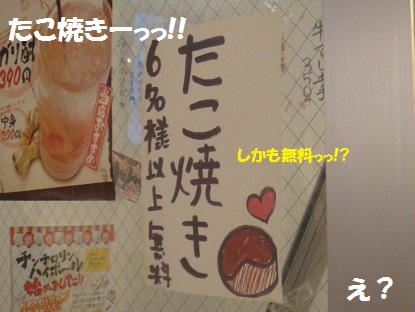 たこ焼きーっっ!!
たこ焼き
6名様以上無料
しかも無料っっ!?
え？
390円
中身
200円
当店おすすめ
チンチロリン
ハイボール
始めました!!